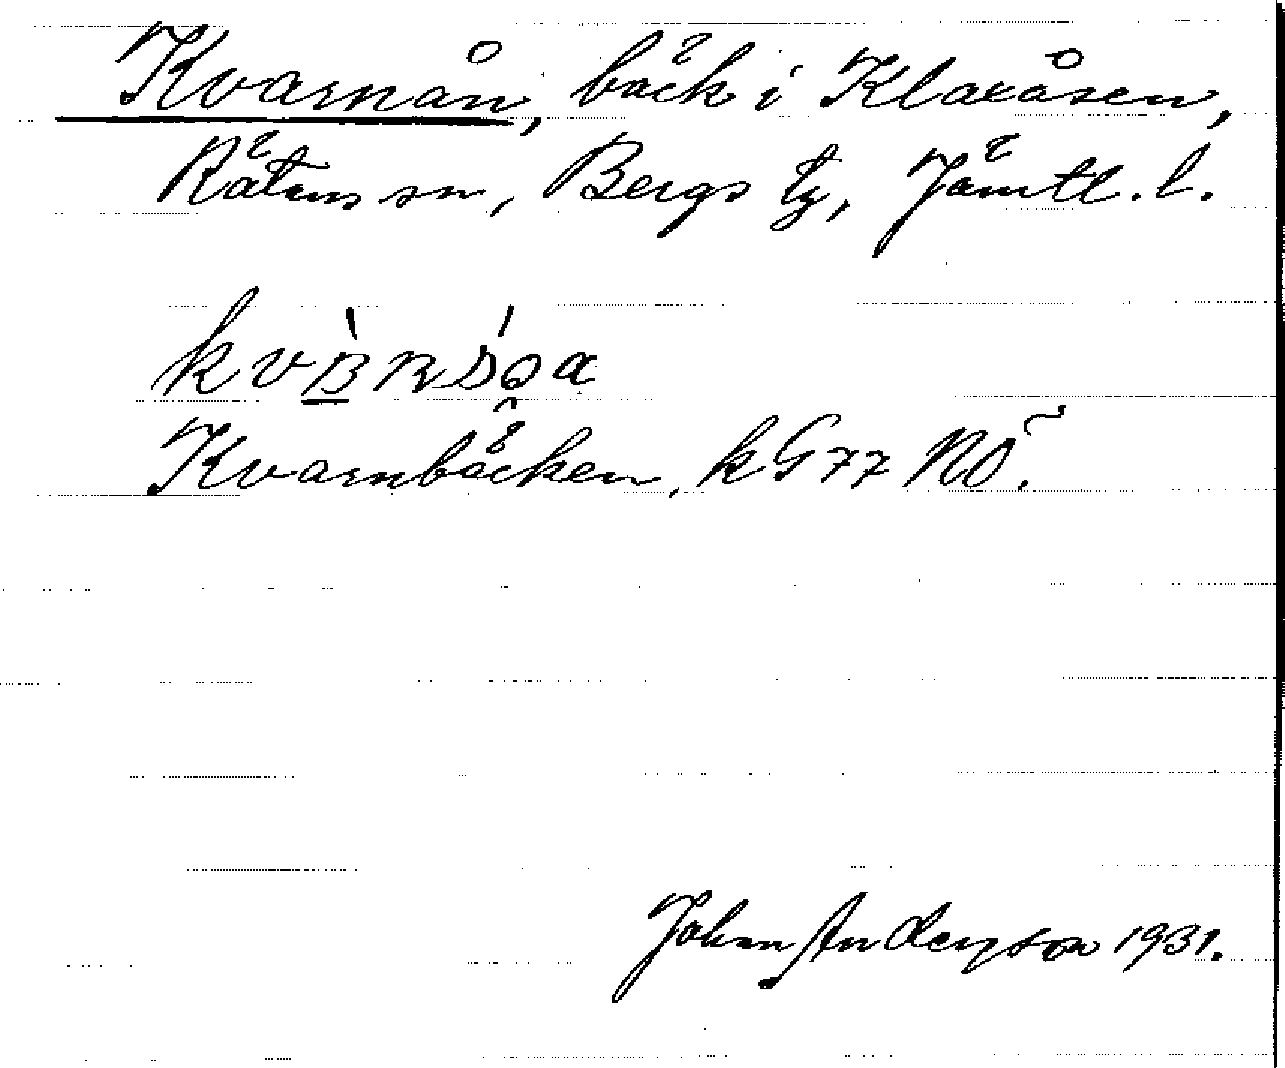 Kvarnån, bäck i Klaxåsen,
Rätans sn, Bergs tg, Jämtl. l.
Kvarnbäcken, kG 77 NÖ.
John Anderson 1931.